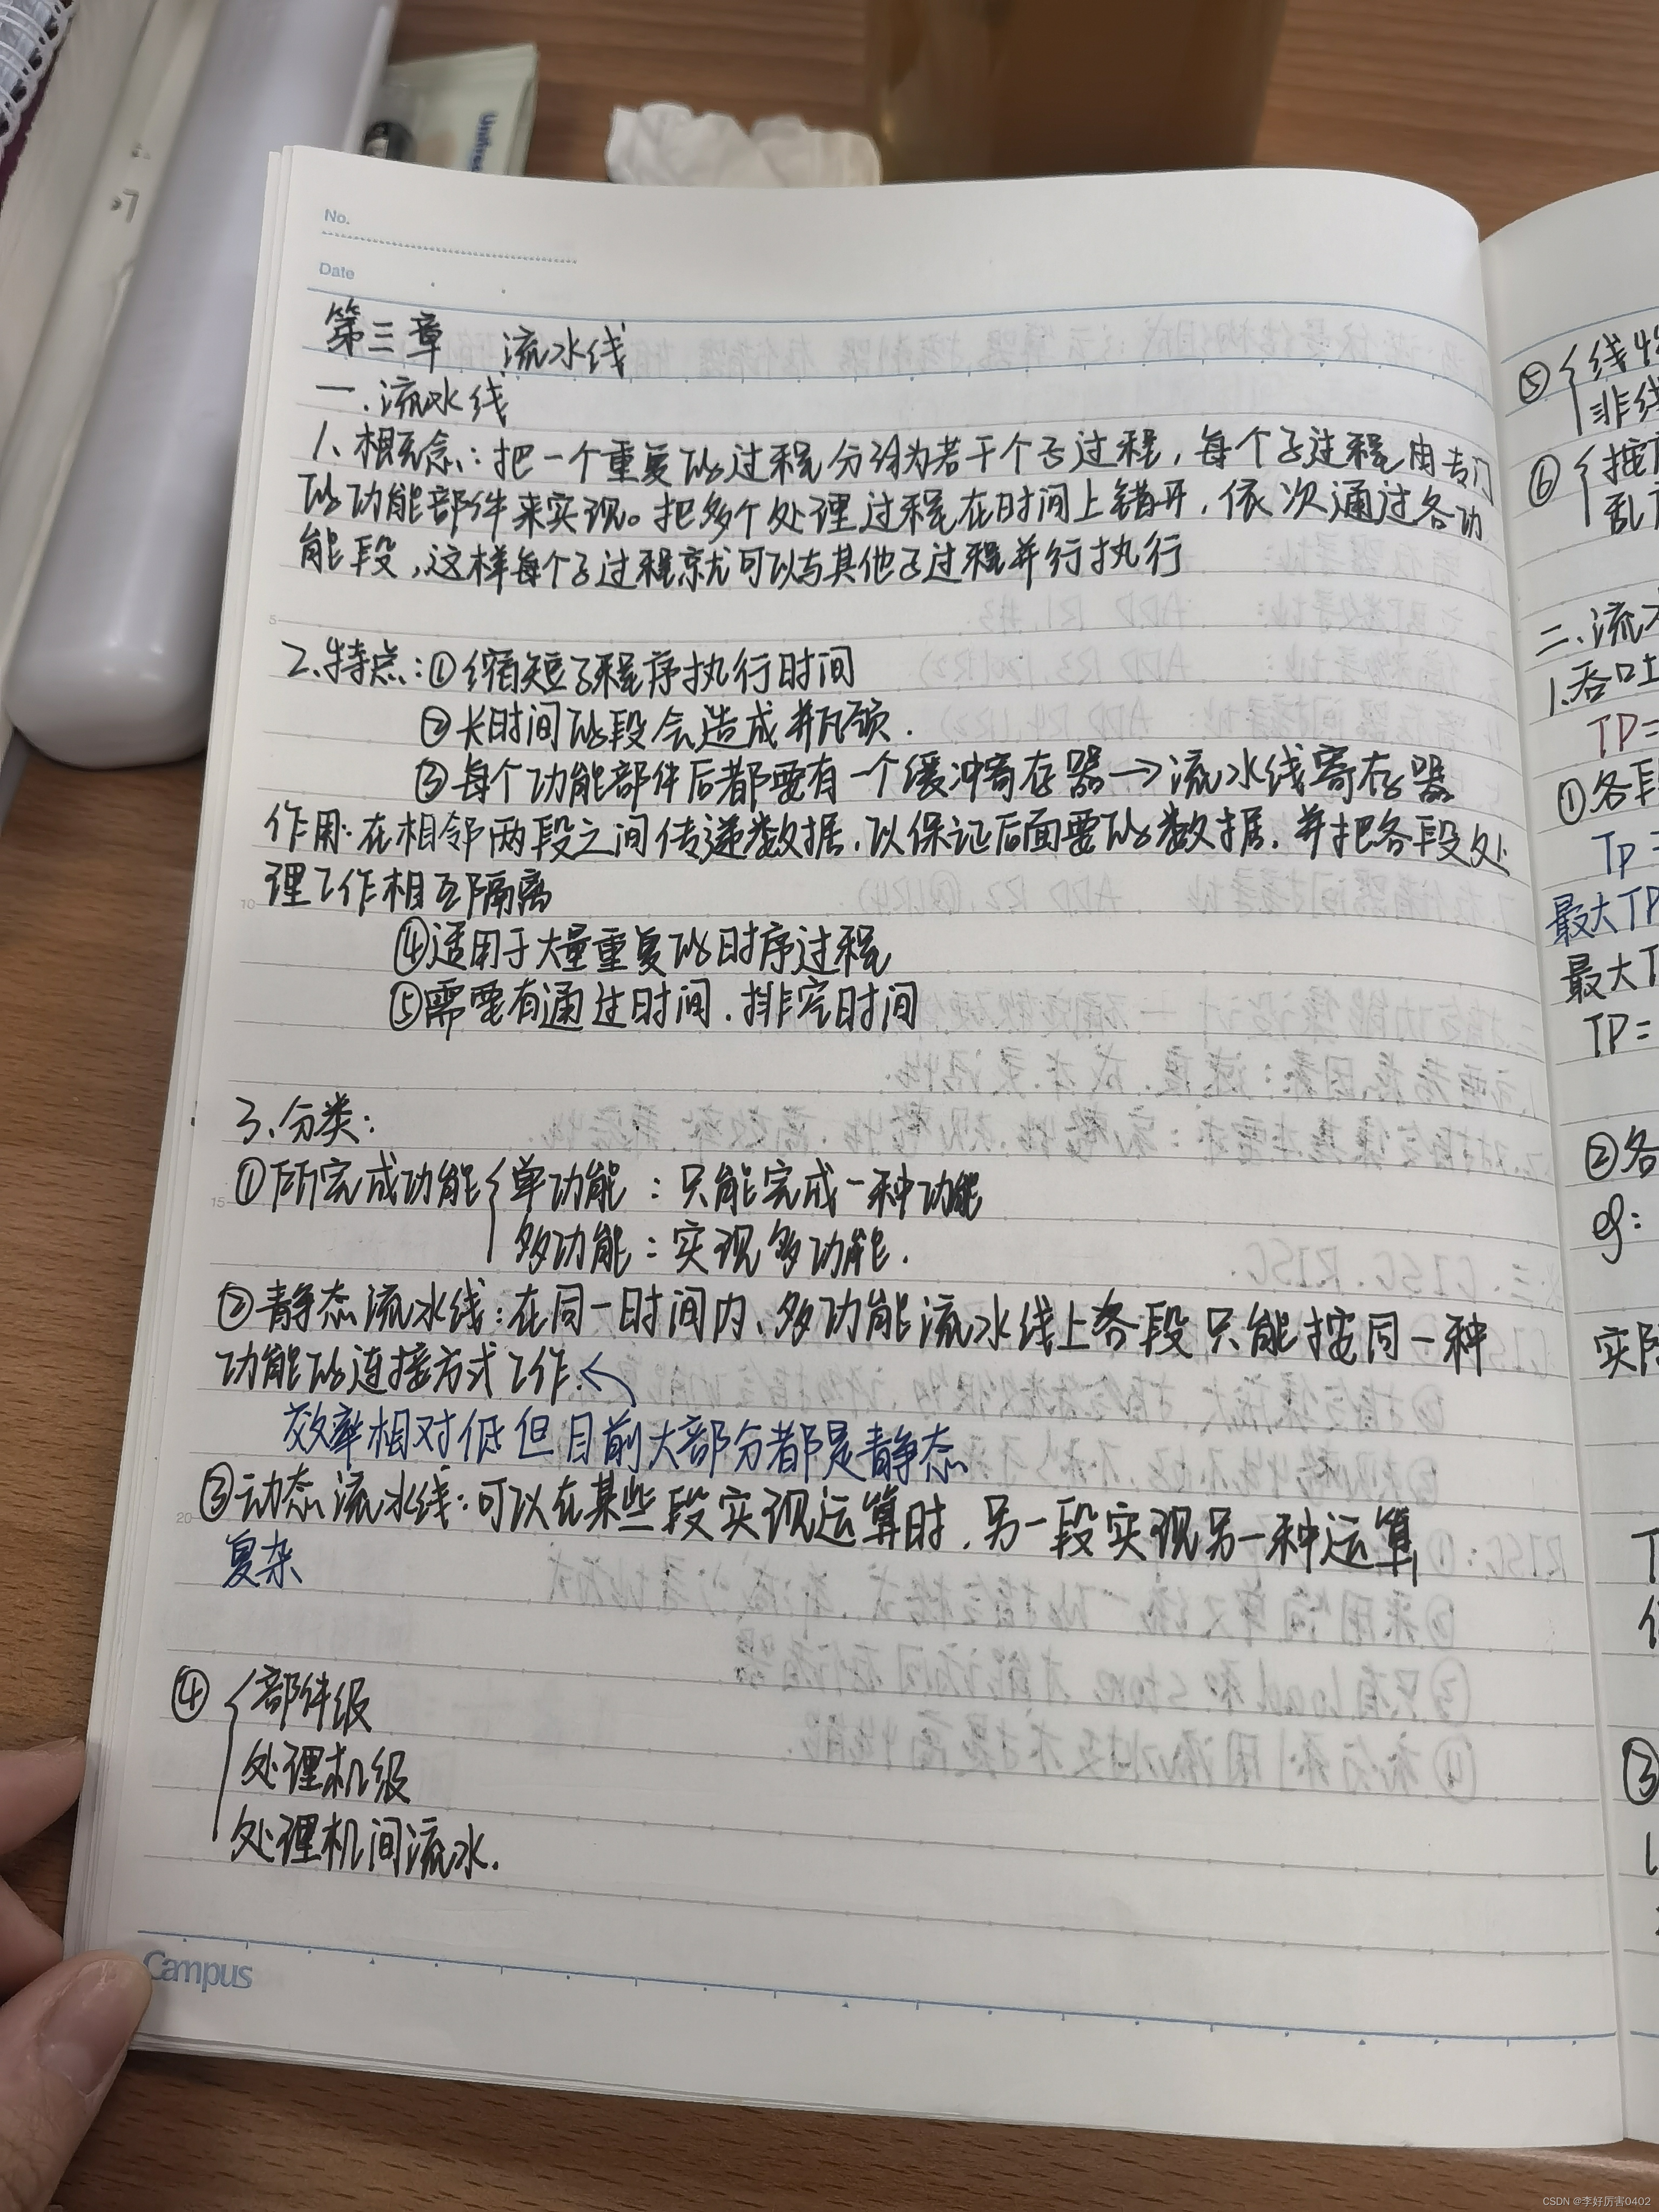 No.
Date
第三章 流水线
一.流水线
1、概念:把一个重复的过程分为若干个子过程,每个子过程由专门
的功能部件来实现。把多个处理过程在时间上错开,依次通过各功
能段,这样每个子过程就可以与其他子过程并行执行
2.特点:①缩短了程序执行时间
②长时间的段会造成瓶颈.
③每个功能部件后都要有一个缓冲寄存器→流水线寄存器
作用:在相邻两段之间传递数据,以保证后面要的数据,并把各段处
理工作相互隔离
④适用于大量重复的时序过程
⑤需要有通过时间.排空时间
3、分类:
①所完成功能{单功能:只能完成一种功能
多功能:实现多功能.
②静态流水线:在同一时间内、多功能流水线上各段只能按同一种
功能的连接方式工作.
效率相对低但目前大部分都是静态
③动态流水线:可以在某些段实现运算时,另一段实现另一种运算
复杂
④{部件级
处理机级
处理机间流水.
Campus
⑤{线性
非线
⑥{按
乱
二.流水
1.吞吐
TP=
①各段
TP=
最大TP
最大T
TP=
②各
eg:
实际
③
CSDN @李好厉害0402